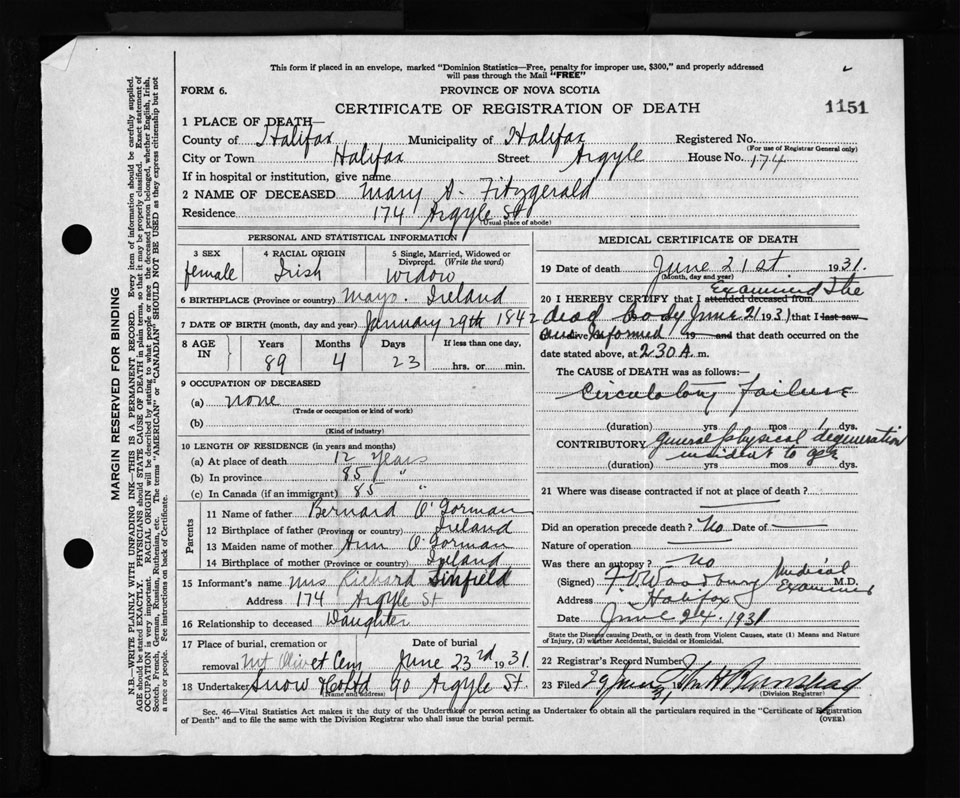 This form if placed in an envelope, marked "Dominion Statistics—Free, penalty for improper use, $300," and properly addressed
will pass through the Mail "FREE"
FORM 6.
PROVINCE OF NOVA SCOTIA
CERTIFICATE OF REGISTRATION OF DEATH
1151
1 PLACE OF DEATH—
County of Halifax Municipality of Halifax Registered No.
(For use of Registrar General only)
City or Town Halifax Street Argyle House No. 174
If in hospital or institution, give name
2 NAME OF DECEASED Mary A. Fitzgerald
Residence 174 Argyle St
(Usual place of abode)
PERSONAL AND STATISTICAL INFORMATION
3 SEX female
4 RACIAL ORIGIN Irish
5 Single, Married, Widowed or Divorced. (Write the word) Widow
6 BIRTHPLACE (Province or country) Mayo. Ireland
7 DATE OF BIRTH (month, day and year) January 29th 1842
8 AGE IN
Years Months Days If less than one day,
89 4 23 hrs. or min.
9 OCCUPATION OF DECEASED
(a) none
(Trade or occupation or kind of work)
(b)
(Kind of industry)
10 LENGTH OF RESIDENCE (in years and months)
(a) At place of death 12 Years
(b) In province 85 "
(c) In Canada (if an immigrant) 85 "
Parents
11 Name of father Bernard O'Gorman
12 Birthplace of father (Province or country) Ireland
13 Maiden name of mother Ann O'Gorman
14 Birthplace of mother (Province or country) Ireland
15 Informant's name Mrs Richard Sinfield
Address 174 Argyle St
16 Relationship to deceased Daughter
17 Place of burial, cremation or removal Mt Olivet Cem
Date of burial June 23rd 1931.
18 Undertaker Snow & Co Ltd 90 Argyle St.
(Name and address)
MEDICAL CERTIFICATE OF DEATH
19 Date of death June 21st. 1931.
(Month, day and year)
Examined the
20 I HEREBY CERTIFY that I attended deceased from
dead body June 21 1931) that I last saw
Informed 19 and that death occurred on the
date stated above, at 2.30 A. m.
The CAUSE OF DEATH was as follows:—
Circulatory failure
(duration) yrs mos 1 dys.
CONTRIBUTORY general physical degeneration
incident to age
(duration) yrs mos dys.
21 Where was disease contracted if not at place of death?
Did an operation precede death? No Date of
Nature of operation
Was there an autopsy? No
(Signed) F. V. Woodbury Medical Examiner M.D.
Address Halifax
Date June 1931
State the Disease causing Death, or in death from Violent Causes, state (1) Means and Nature
of Injury, (2) whether Accidental, Suicidal or Homicidal.
22 Registrar's Record Number
23 Filed 29 June
(Division Registrar)
Sec. 46—Vital Statistics Act makes it the duty of the Undertaker or person acting as Undertaker to obtain all the particulars required in the "Certificate of Registration
of Death" and to file the same with the Division Registrar who shall issue the burial permit.
(OVER)
MARGIN RESERVED FOR BINDING
N.B.—WRITE PLAINLY WITH UNFADING INK—THIS IS A PERMANENT RECORD. Every item of information should be carefully supplied.
AGE should be stated EXACTLY. PHYSICIANS should STATE CAUSE OF DEATH in plain terms, so that it may be properly classified. Exact statement of
OCCUPATION is very important. RACIAL ORIGIN will be described by stating to what people or race the deceased person belonged, whether English, Irish,
Scotch, French, German, Russian, Ruthenian, etc. The terms "AMERICAN" or "CANADIAN" SHOULD NOT BE USED as they express citizenship but not
a race or people. See instructions on back of Certificate.